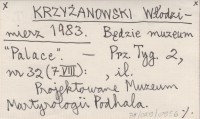 x KRZYŻANOWSKI Włodzi- x
mierz 1983. Będzie muzeum
"Palace". — Prz. Tyg. 2,
nr 32 (7 VIII): , il.
Projektowane Muzeum
Martyrologii Podhala.